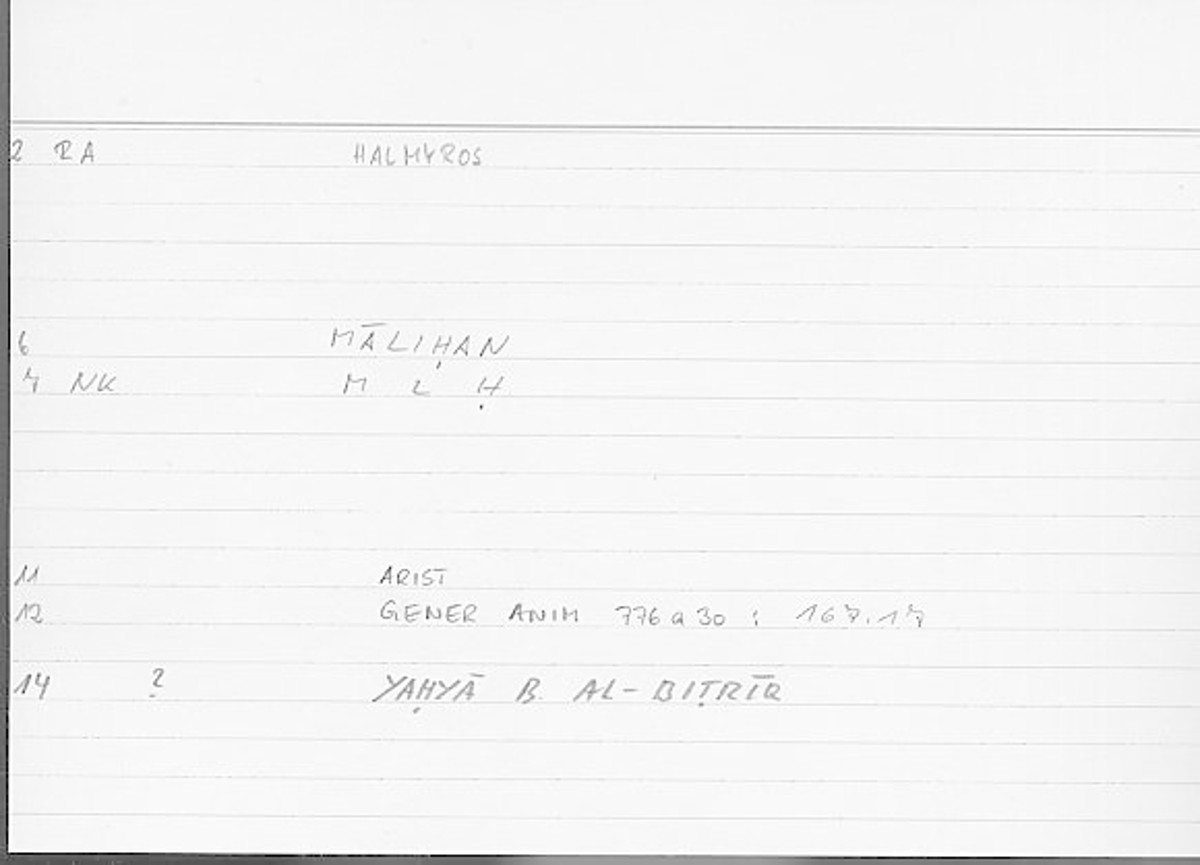 2 RA HALMYROS
6 MĀLIḤAN
7 NK M L Ḥ
11 ARIST
12 GENER ANIM 776 a 30 : 167.17
14 ? YAḤYĀ B. AL-BIṬRĪQ